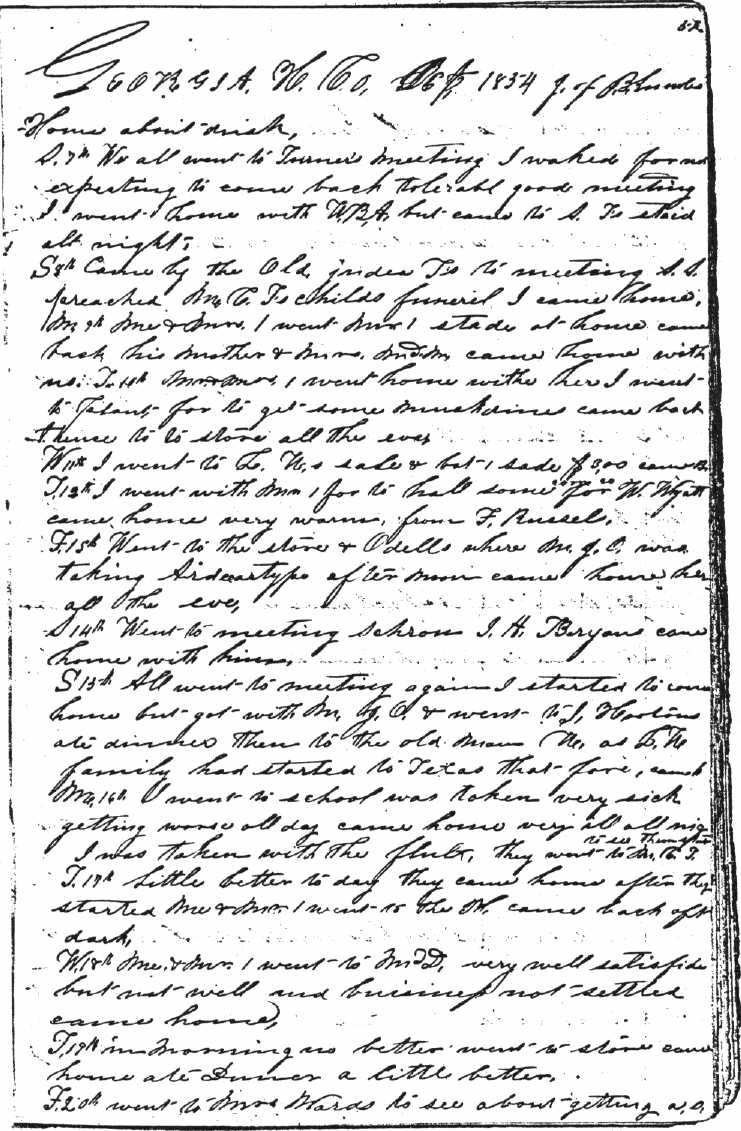 52
GEORGIA. H. Co, 1854 J. of B.
Home about dusk,
S. 7th We all went to Turner's meeting I waked for no
expecting to come back tolerabl good meeting
I went home with WBA, but came to S. Fs staid
all night,
S 8th Came by the Old, judea Fs to meeting S. S.
preached Mr, C. Fs childs funerel I came home,
M, 9th Me & Mrs. 1 went Mrs 1 stade at home came
back his Mother & Mrs. came home with
us. T. 10th 1 went home withe her I went
to for to get some Muskdines came back
thense to to store all the eve,
W 11th I went to L. N,s sale & bat 1 sade $5,00 came
T. 12th I went with Mrs 1 for to hall some for W. Wyatt
came home very warm, from F. Russel.
F. 13th Went to the store & Odells where M. J. O. was
taking after noon came home her
all the eve,
S 14th Went to meeting J. H. Beryans came
home with him.
S 15th All went to meeting again I started to come
home but got with M, J. O. & went to J, Hootons
ate dinner then to the old Man N, as L. N
family had started to Texas that fore,
M, 16th I went to school was taken very sick
getting worse all day came home very ill all nig
to see them
I was taken with the flux, they went to M, C. F.
T. 17th Little better to day they came home after they
started Me & Mrs. 1 went to the M. came back aft
dark,
W 18th Me. & Mr. 1 went to McD, very well satisfide
but not well and buisiness not settled
came home,
T. 19th in Morning no better went to store came
home ate Dinner a little better,
F. 20th went to Mrs Wards to see about getting a, O,